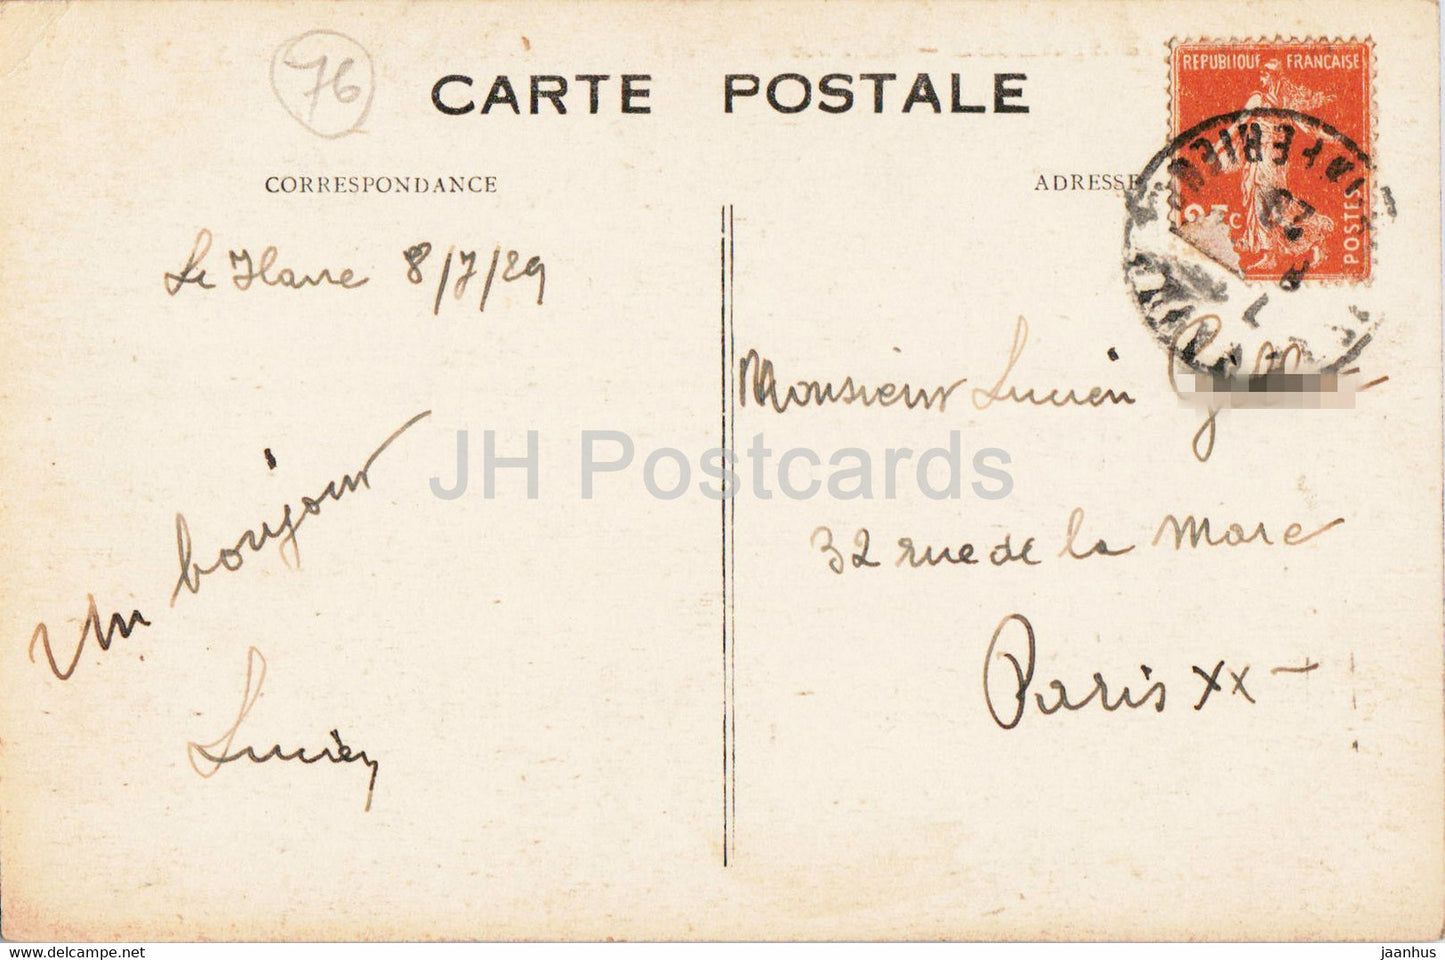 76
CARTE POSTALE
CORRESPONDANCE
ADRESSE
REPUBLIQUE FRANÇAISE
25c
POSTES
Le Havre 8/7/29
Un bonjour
Lucien
Monsieur Lucien
32 rue de la Mare
Paris XX
JH Postcards
https://www.ebay.com/usr/jaanhus
jaanhus